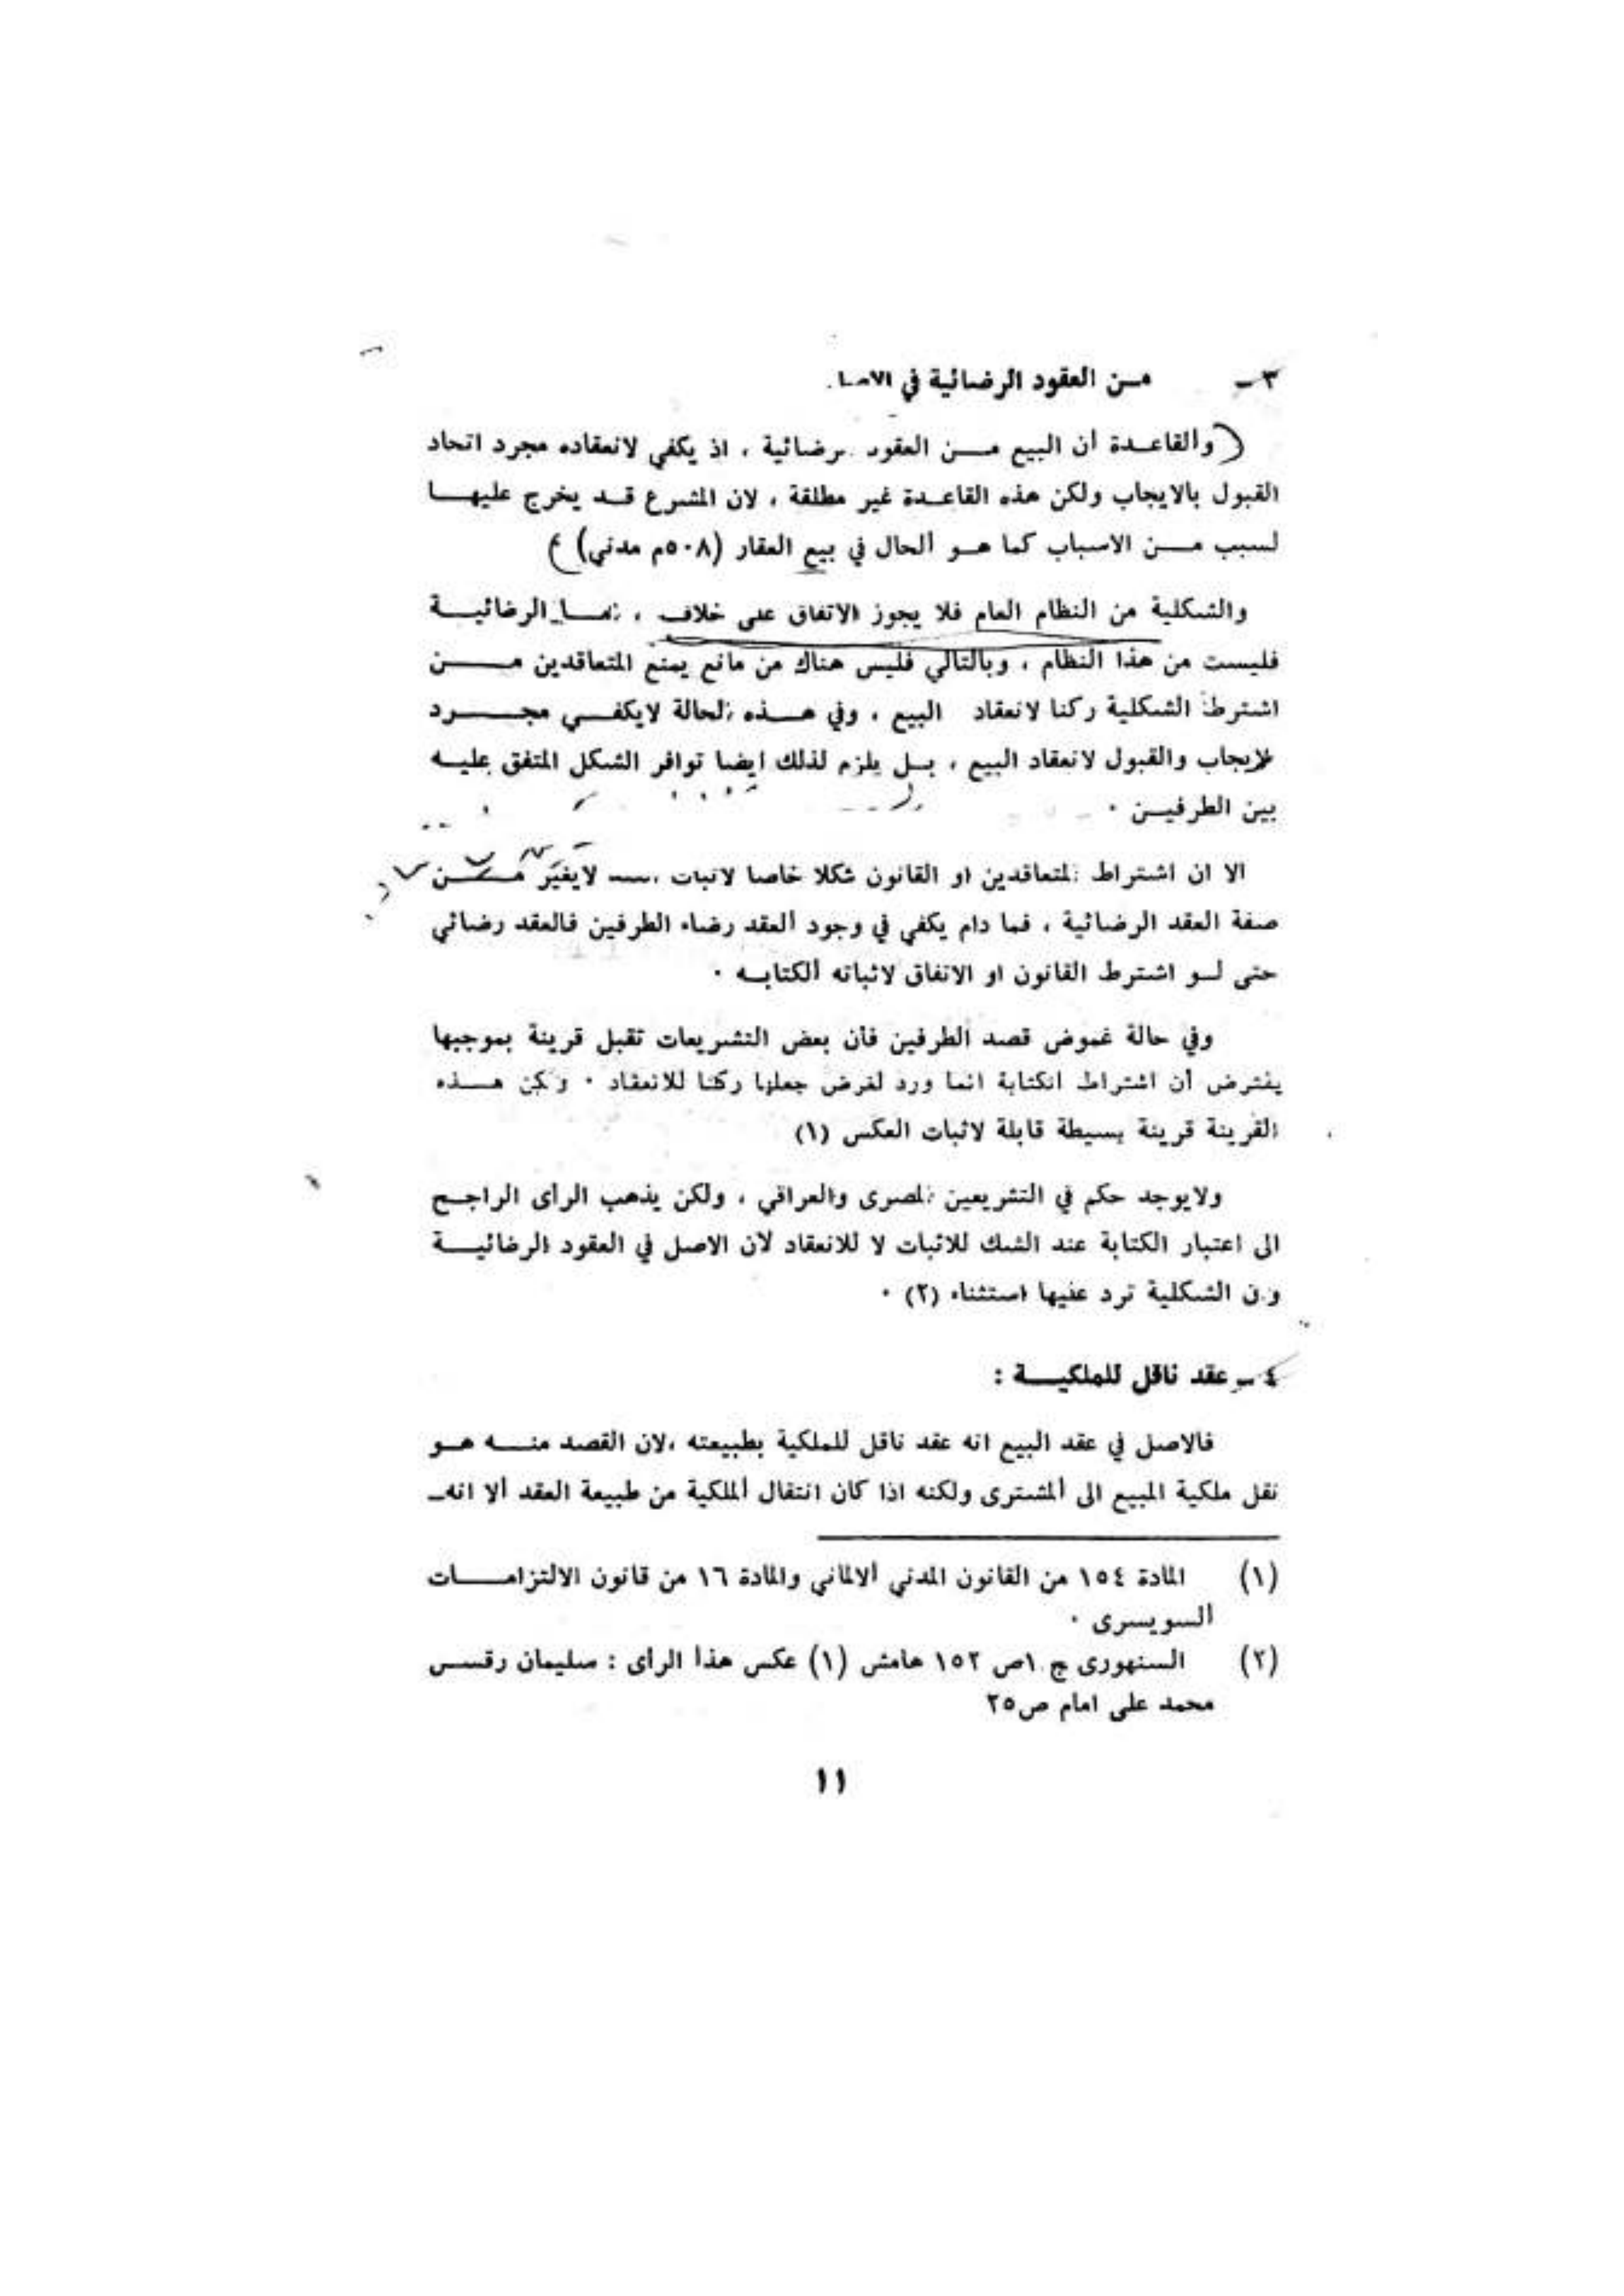 ٣ـ من العقود الرضائية في
(والقاعدة أن البيع من العقود ، اذ يكفي لانعقاده مجرد اتحاد
القبول بالايجاب ولكن هذه القاعدة غير مطلقة ، لان المشرع قد يخرج عليها
لسبب من الاسباب كما هو ألحال في بيع العقار (٥٠٨م مدني)
والشكلية من النظام العام فلا يجوز الاتفاق على خلاف ، الرضائية
فليست من هذا النظام ، وبالتالي فليس هناك من مانع يمنع المتعاقدين من
اشترط الشكلية ركنا لانعقاد البيع ، وفي هذه الحالة لايكفي مجرد
والقبول لانعقاد البيع ، بل يلزم لذلك ايضا توافر الشكل المتفق عليه
بين الطرفين ٠
الا ان اشتراط المتعاقدين او القانون شكلا خاصا لاثبات لايغير من
صفة العقد الرضائية ، فما دام يكفي في وجود ألعقد رضاء الطرفين فالعقد رضائي
حتى لو اشترط القانون او الاتفاق لاثباته ألكتابه ٠
وفي حالة غموض قصد الطرفين فأن بعض التشريعات تقبل قرينة بموجبها
يفترض أن اشتراط الكتابة انما ورد لغرض جعلها ركنا للانعقاد ٠ ولكن هذه
القرينة قرينة بسيطة قابلة لاثبات العكس (١)
ولايوجد حكم في التشريعين المصرى والعراقي ، ولكن يذهب الرأى الراجح
الى اعتبار الكتابة عند الشك للاثبات لا للانعقاد لان الاصل في العقود الرضائية
وان الشكلية ترد عليها استثناء (٢) ٠
٤ ـ عقد ناقل للملكية :
فالاصل في عقد البيع انه عقد ناقل للملكية بطبيعته ،لان القصد منه هو
نقل ملكية المبيع الى ألمشترى ولكنه اذا كان انتقال ألملكية من طبيعة العقد ألا انه
(١) المادة ١٥٤ من القانون المدني ألالماني والمادة ١٦ من قانون الالتزامات
ألسويسرى ٠
(٢) السنهورى ج ١ص ١٥٢ هامش (١) عكس هذأ الرأى : سليمان رقس
محمد على امام ص٢٥
١١